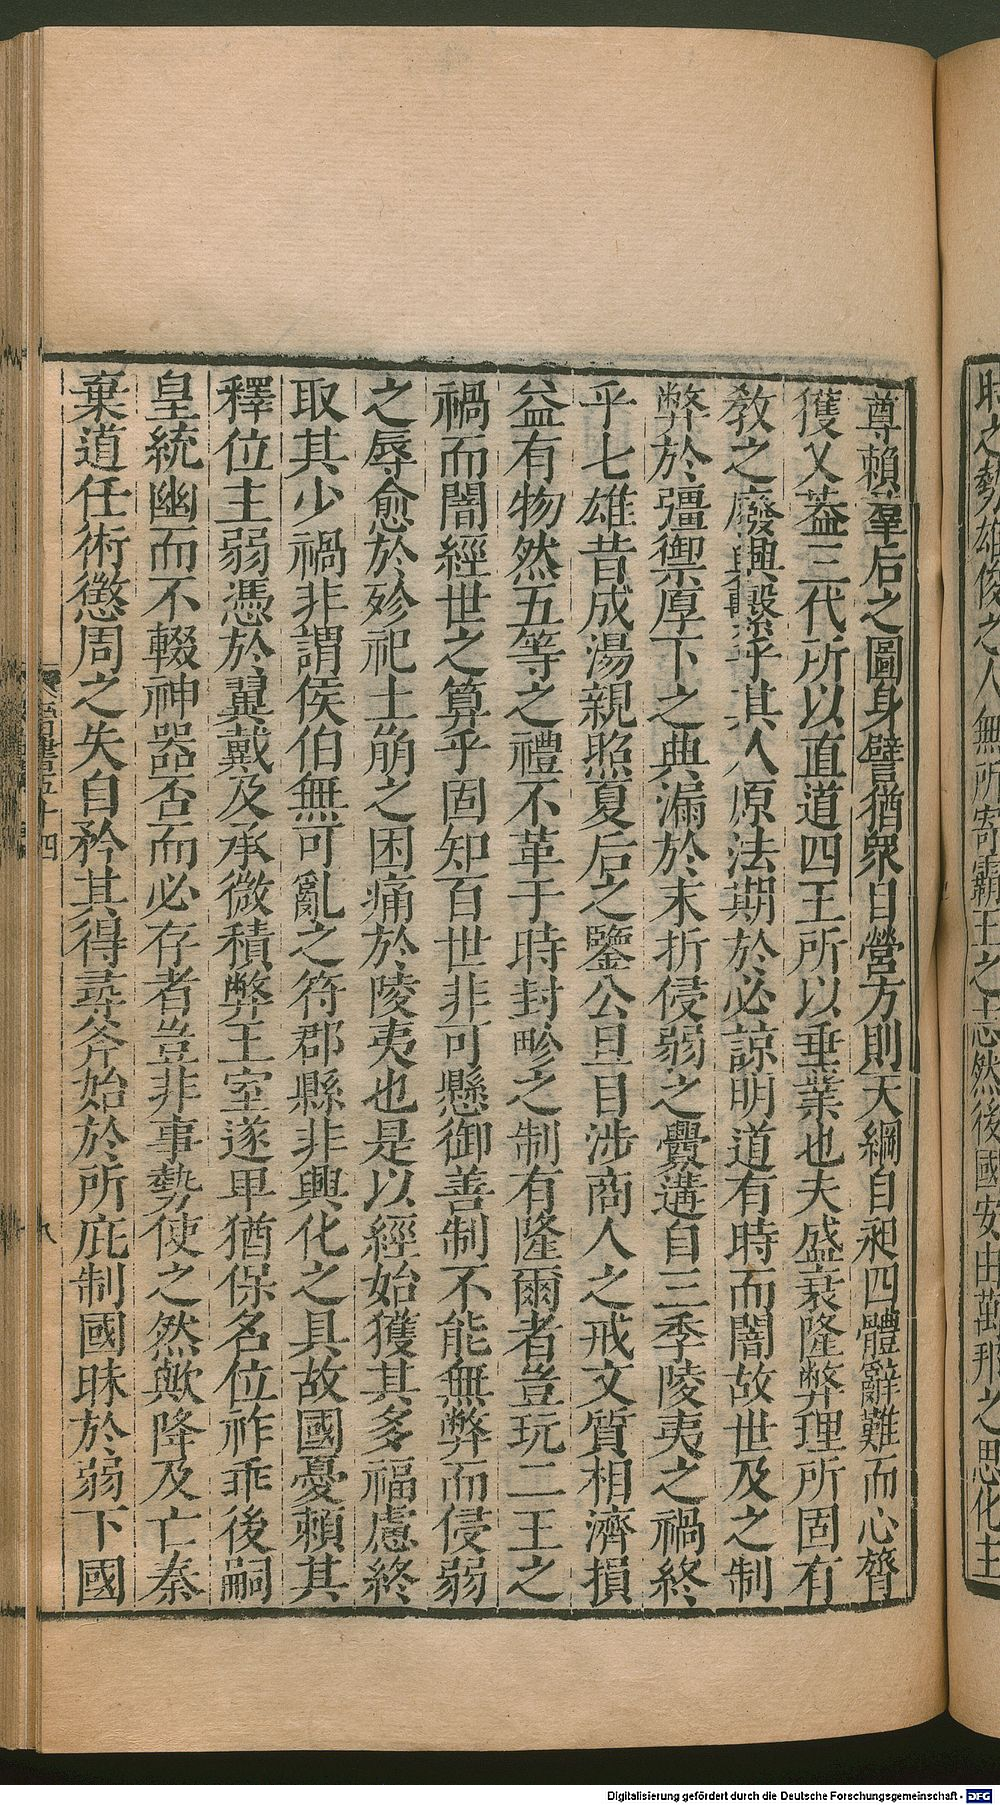 時之勢雄俊之人無所寄霸王之志然後國安由萬邦之思化主
尊賴羣后之圖身譬猶衆目營方則天綱自昶四體辭難而心膂
獲乂蓋三代所以直道四王所以垂業也夫盛衰隆弊理所固有
敎之廢興繫乎其人原法期於必諒明道有時而闇故世及之制
弊於彊禦厚下之典漏於末折侵弱之釁遘自三季陵夷之禍終
乎七雄昔成湯親照夏后之鑒公旦目涉商人之戒文質相濟損
益有物然五等之禮不革于時封畛之制有隆爾者豈玩二王之
禍而闇經世之算乎固知百世非可懸御善制不能無弊而侵弱
之辱愈於殄祀土崩之困痛於陵夷也是以經始獲其多福慮終
取其少禍非謂侯伯無可亂之符郡縣非興化之具故國憂賴其
釋位主弱憑於翼戴及承微積弊王室遂卑猶保名位祚垂後嗣
皇統幽而不輟神器否而必存者豈非事勢使之然歟降及亡秦
棄道任術懲周之失自矜其得尋斧始於所庇制國昧於弱下國
晉書五十四
八
Digitalisierung gefördert durch die Deutsche Forschungsgemeinschaft - DFG